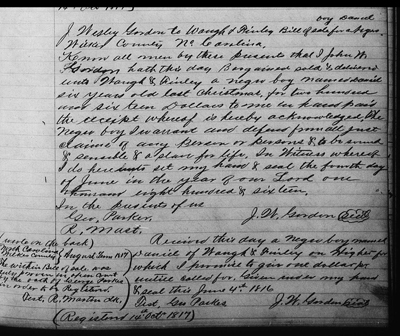 boy Daniel
J. Wesley Gordon to Waugh & Finley Bill of sale for a negro
Wilkes County, No Carolina,
Know all men by these presents that I John W.
Gordon hath this day bargained sold & delivered
unto Waugh & Finley a negro boy named Daniel
six years old last Christmas, for two hundred
and six teen Dollars to me in hand paid
the receipt whereof is hereby acknowledged, the
Negro boy I warrant and defend from all just
claims of any person or persons & to be sound
& sensible & a slave for life. In Witness whereof
I do hereunto set my hand & seal the fourth day
of June in the year of our Lord one
thousand eight hundred & sixteen,
In the presents of us
Geo, Parker,
J. W. Gordon (Seal)
R, Mast.
(wrote on the back)
North Carolina
Wilkes County
August Term 1817
the within Bill of sale was
duly proven in open Court
by the oath of George Parker
and ordered to be Registered,
Test, R. Martin clk.
Received this day a Negro boy named
Daniel of Waugh & Finley on hire for
which I promise to give one dollar for
until called for. Given under my hand
& seal this June 4th 1816
Test Geo Parker
J. W. Gordon (Seal)
(Registered 14 Oct. 1817)